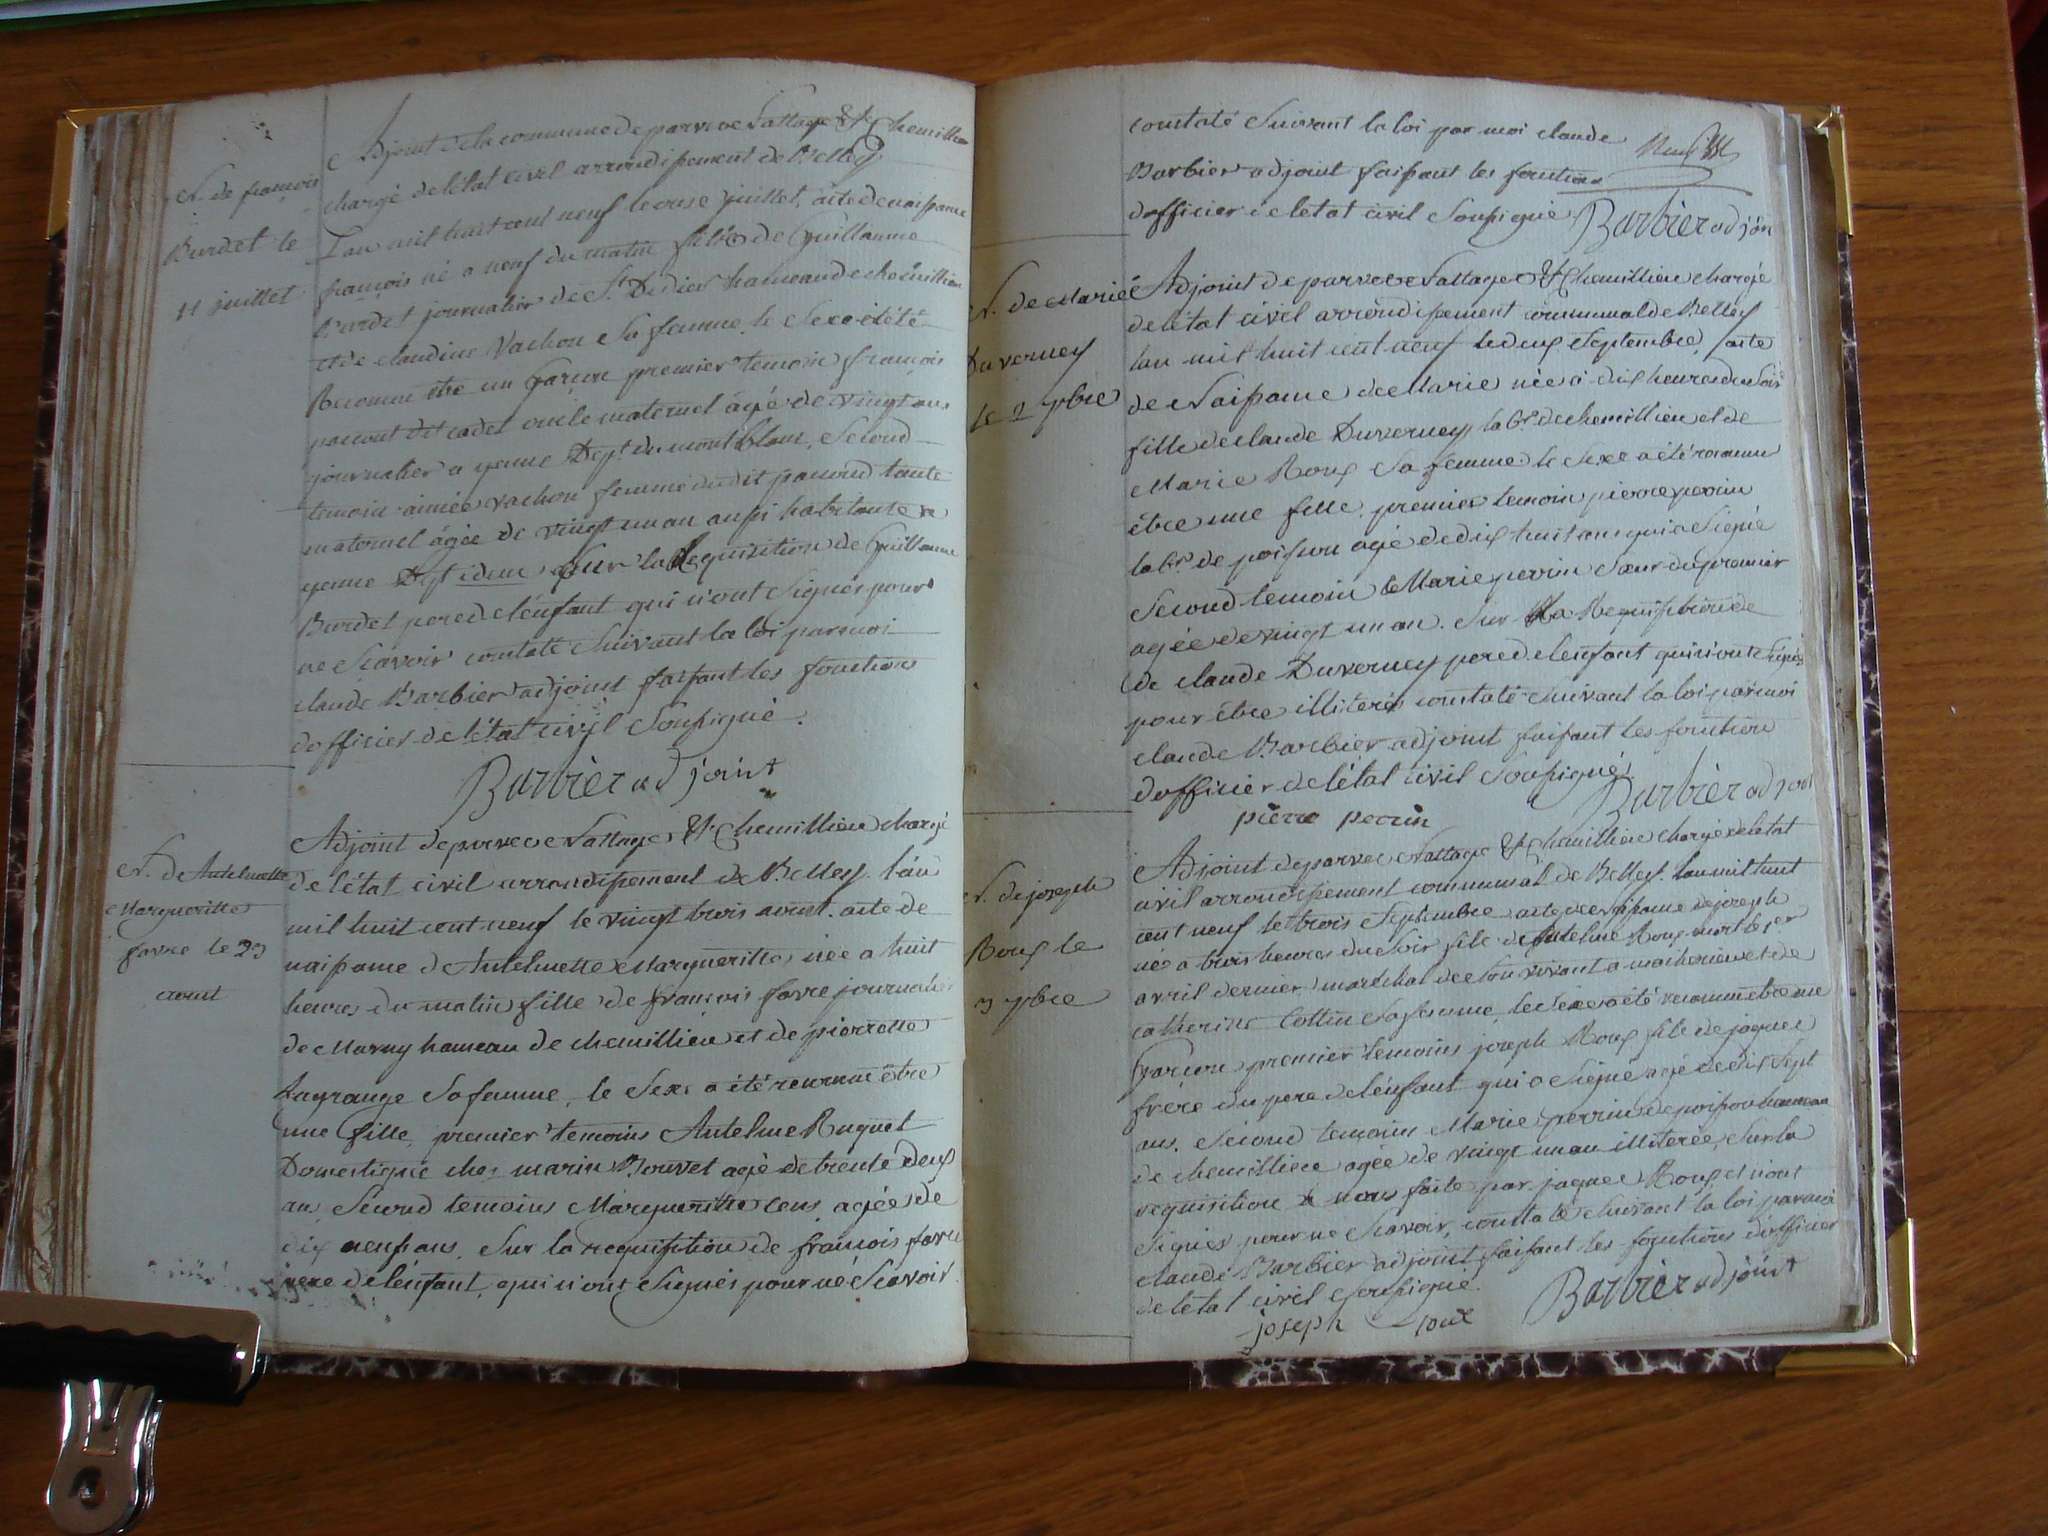 N. de françois
Burdet le
11 juillet
Adjoint de la commune de parves Nattage & Chemillieu
chargé de l'état civil arrondissement de Belley
l'an mil huit cent neuf le onze juillet, acte de naissance
françois né a neuf du matin fils de Guillaume
Burdet journalier de St. Didier hameau de chemillieu
et de claudine Vachon Sa femme, le Sexe a été
Reconnu être un Garçon premier temoin françois
dit cadet oncle maternel âgé de vingt ans
journalier a yenne Dept. du montblanc, Second
temoin aimée vachon femme du dit tante
maternel âgée de vingt un an aussi habitante a
yenne Dept idem Sur la Requisition de Guillaume
Burdet pere de l'énfant qui n'ont Signés pour
ne Scavoir constaté Suivant la loi par moi
claude Barbier adjoint faisant les fonctions
d'officier de l'état civil Soussigné.
Barbier adjoint
N. de Antelmette
Margueritte
favre le 23
aout
Adjoint de parves Nattage & Chemillieu chargé
de l'état civil arrondissement de Belley l'an
mil huit cent neuf le vingt trois aout. acte de
naissance d'Antelmette Margueritte née a huit
heures du matin fille de françois favre journalier
de Marny hameau de chemillieu et de pierrette
Lagrange Sa femme, le Sexe a été reconnu être
une fille, premier temoins Antelme Ruguet
Domestique chez marin Bouvet agé de trente deux
an, Second temoins Margueritte agée de
dix neuf ans, Sur la requisition de françois favre
pere de l'énfant, qui n'ont Signés pour né Scavoir
constaté Suivant la loi par moi claude
Barbier adjoint faisant les fonctions
d'officier de l'etat civil Soussigné Barbier adjoin
N. de Marie
Duverney
le 2 7bre
Adjoint de parves Nattage & Chemillieu chargé
de l'état civil arrondissement communal de Belley
l'an mil huit cent neuf le deux Septembre, acte
de Naissance de Marie née à dix heures du Soir
fille de claude Duverney labr. de chemillieu et de
Marie Roux Sa femme le Sexe a été reconnu
être une fille, premier temoin pierre perrin
labr. de poisson agé de dix huit ans qui a Signé
Second temoin Marie perrin Sœur du premier
agée de vingt un an. Sur la Requisition de
de claude Duverney pere de l'enfant qui n'ont Signés
pour être illiterés constaté Suivant la loi par moi
claude Barbier adjoint faisant les fonction
d'officier de l'état civil Soussigné. Barbier adjoin
pierre perrin
N. de joseph
Roux le
3 7bre
Adjoint de parves Nattage & Chemillieu chargé de l'etat
civil arrondissement communal de Belley. l'an mil huit
cent neuf le trois Septembre acte de naissance de joseph
né a trois heures du Soir fils de Antelme Roux mort le 1er
avril dernier, maréchal de Son vivant a et de
catherine Collin Sa femme, le Sexe a été reconnu etre un
Garçon premier temoins joseph Roux fils de jaques
frère du pere de l'énfant qui a Signé agé de dix Sept
ans, Second temoins Marie perrin de poisson hameau
de chemillieu agée de vingt un an illiterée, Sur la
requisition a nous faite par jaques Roux et n'ont
Signés pour ne Scavoir, constaté Suivant la loi par moi
claude Barbier adjoint faisant les fonctions d'officier
de l'etat civil Soussigné. Barbier adjoint
joseph roux